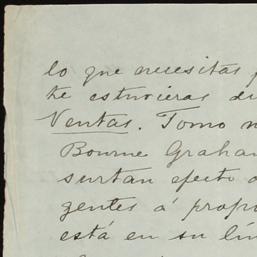 lo que necesitas
te estuvieras
Ventas. Tomo
Bourne Graham
surtan efecto
gentes á
está en su